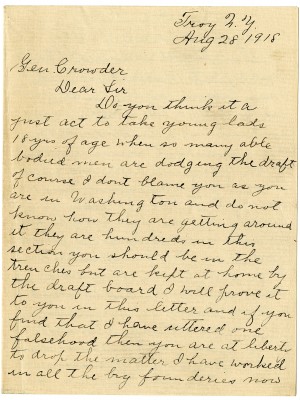 Troy N.Y.
Aug 28 1918
Gen Crowder
Dear Sir
Do you think it a
just act to take young lads
18 yrs of age when so many able
bodied men are dodging the draft
of course I dont blame you as you
are in Washington and do not
know how they are getting around
it they are hundreds in this
section you should be in the
trenches but are kept at home by
the draft board I will prove it
to you in this letter and if you
find that I have uttered one
falsehood then you are at liberty
to drop the matter I have worked
in all the big founderies now